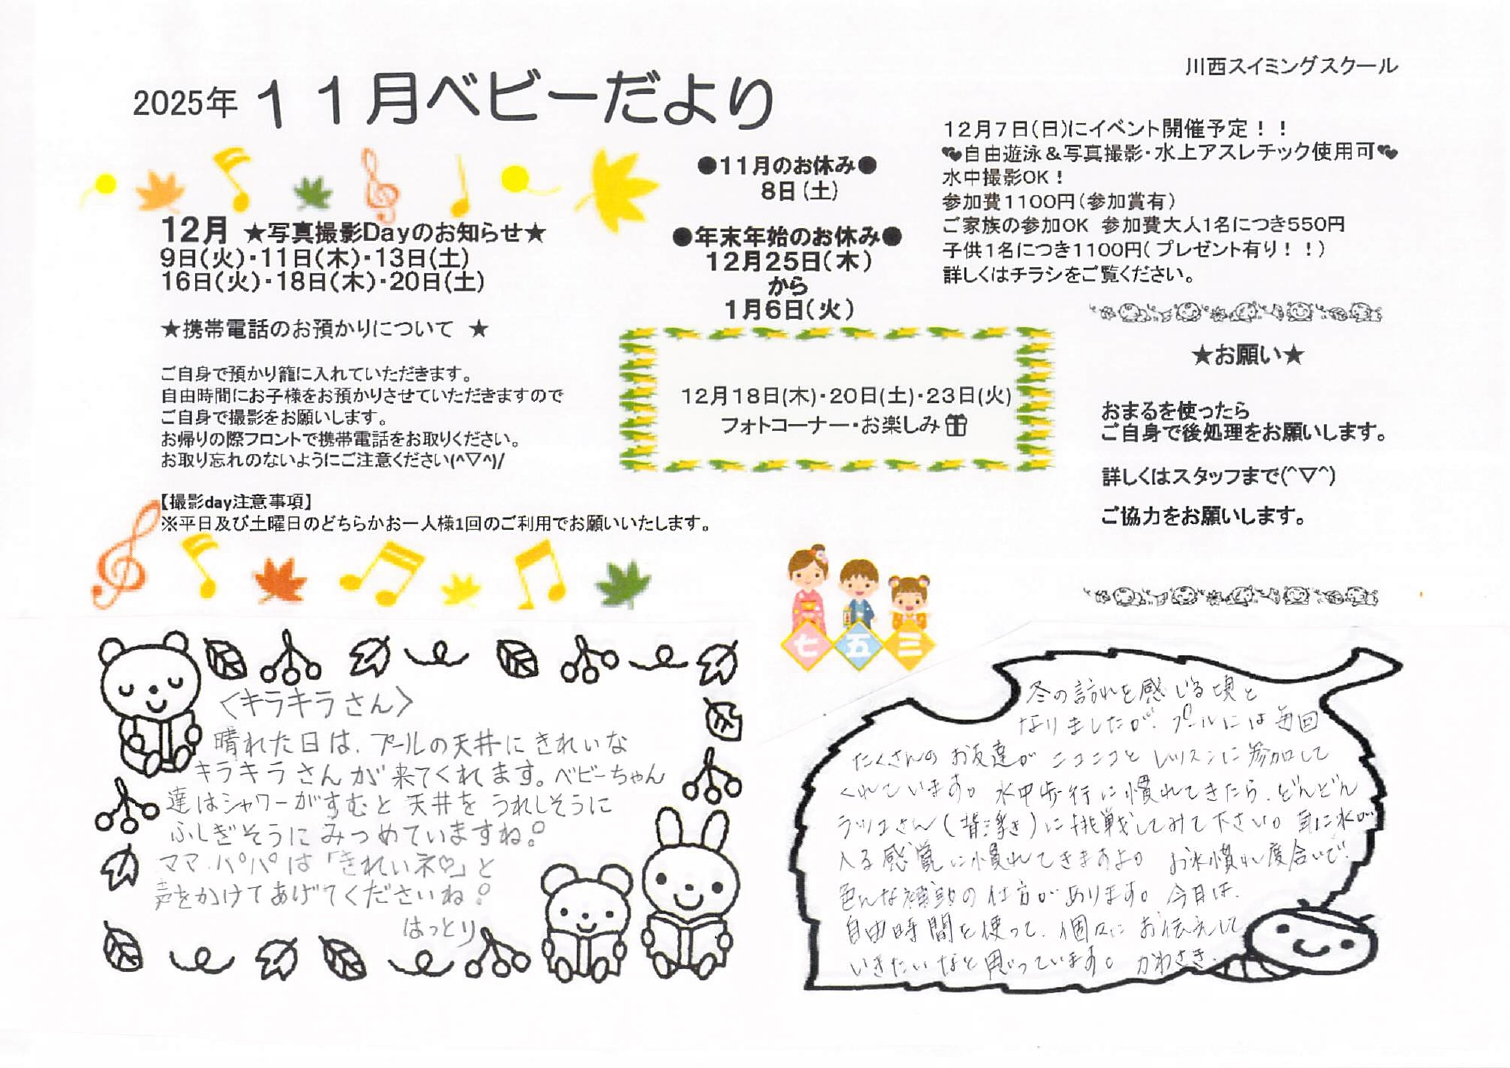 川西スイミングスクール
2025年 11月ベビーだより
12月 ★写真撮影Dayのお知らせ★
9日(火)・11日(木)・13日(土)
16日(火)・18日(木)・20日(土)
★携帯電話のお預かりについて ★
ご自身で預かり籠に入れていただきます。
自由時間にお子様をお預かりさせていただきますので
ご自身で撮影をお願いします。
お帰りの際フロントで携帯電話をお取りください。
お取り忘れのないようにご注意ください(^▽^)/
【撮影day注意事項】
※平日及び土曜日のどちらかお一人様1回のご利用でお願いいたします。
●11月のお休み●
8日(土)
●年末年始のお休み●
12月25日(木)
から
1月6日(火)
12月18日(木)・20日(土)・23日(火)
フォトコーナー・お楽しみ
12月7日(日)にイベント開催予定！！
自由遊泳＆写真撮影・水上アスレチック使用可
水中撮影OK！
参加費1100円(参加賞有)
ご家族の参加OK 参加費大人1名につき550円
子供1名につき1100円( プレゼント有り！！)
詳しくはチラシをご覧ください。
★お願い★
おまるを使ったら
ご自身で後処理をお願いします。
詳しくはスタッフまで(^▽^)
ご協力をお願いします。
七五三
〈キラキラさん〉
晴れた日は、プールの天井にきれいな
キラキラさんが来てくれます。ベビーちゃん
達はシャワーがすむと天井をうれしそうに
ふしぎそうにみつめていますね。
ママ・パパは「きれいネ♡」と
声をかけてあげてくださいね。
はっとり
冬の訪れを感じる頃と
なりましたが、プールには毎回
たくさんのお友達がニコニコとレッスンに参加して
くれています。水中歩行に慣れてきたら、どんどん
ラッコさん(背浮き)に挑戦してみて下さい。耳に水が
入る感覚に慣れてきますよ。お水慣れ度合いで、
色んな補助の仕方があります。今月は、
自由時間を使って、個々にお伝えして
いきたいなと思っています。かわさき